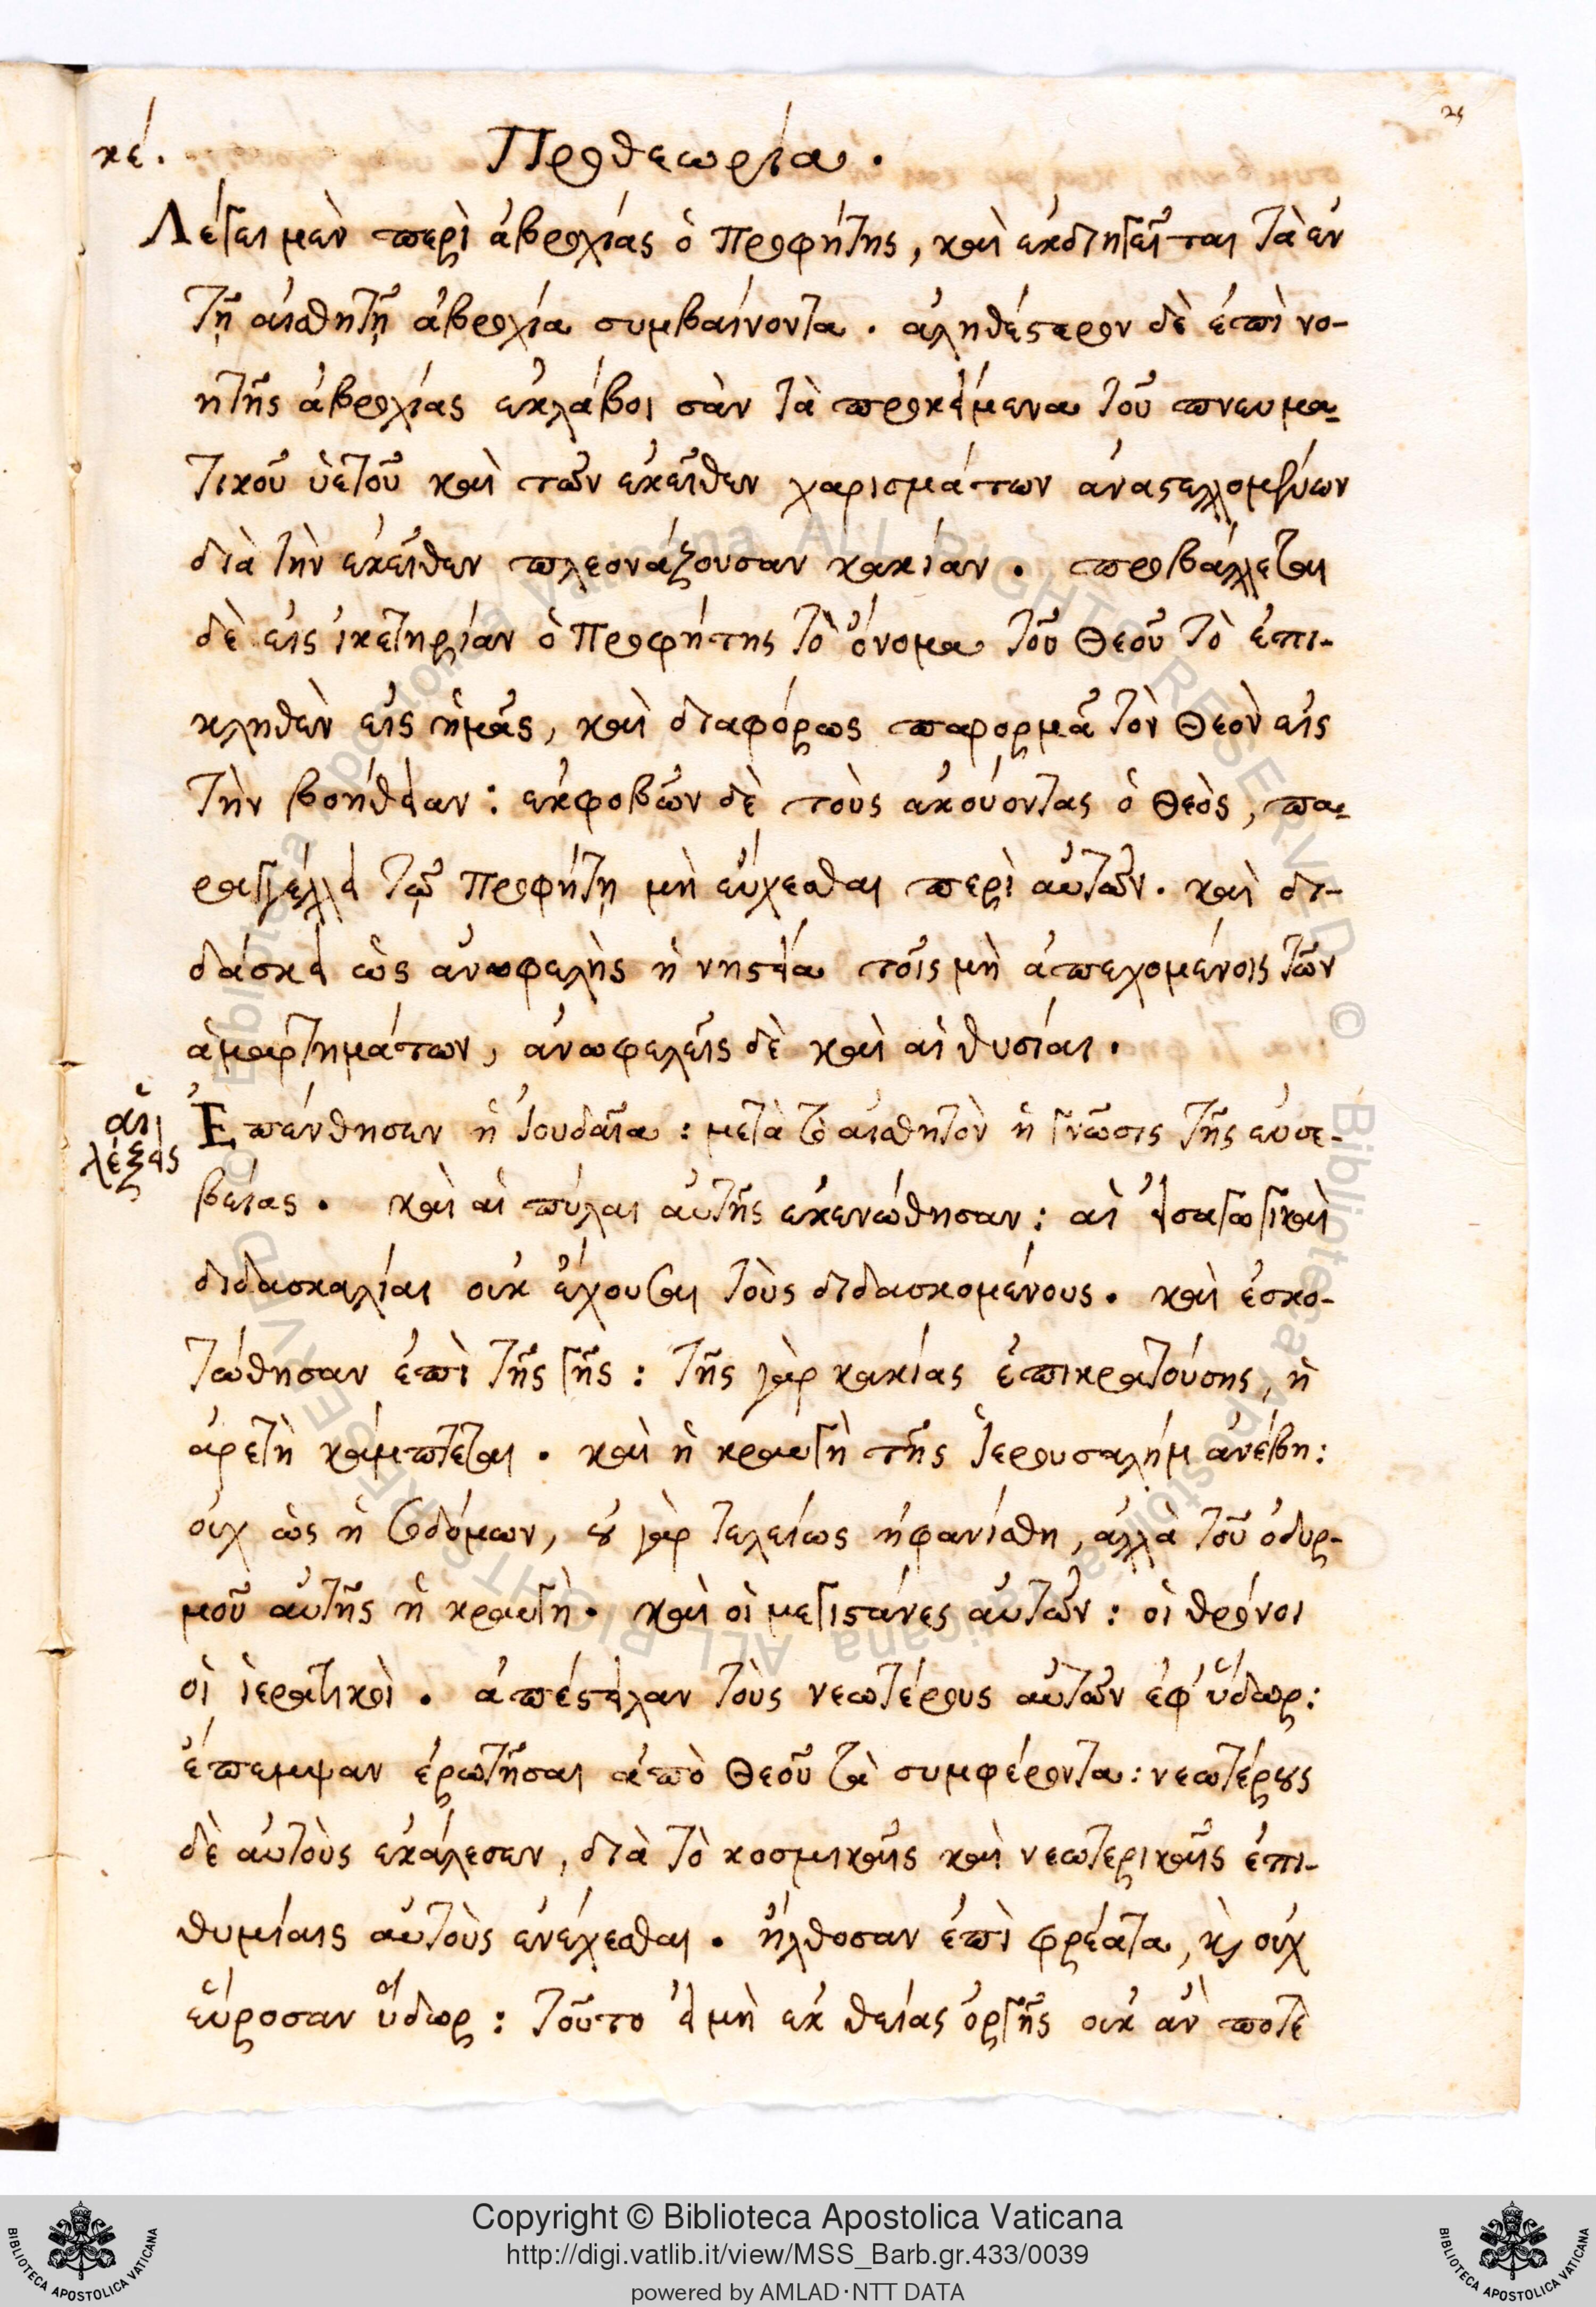 κέ. Προθεωρία.
Λέγει μὲν περὶ ἀβροχίας ὁ Προφήτης, καὶ ἐκδιηγεῖται τὰ ἐν
τῇ αἰσθητῇ ἀβροχία συμβαίνοντα. ἀληθέστερον δὲ ἐπὶ νο-
ητῆς ἀβροχίας ἐκλάβοι σὰν τὰ προκείμενα τοῦ πνευμα-
τικοῦ ὑετοῦ καὶ τῶν ἐκεῖθεν χαρισμάτων ἀναστελλομένων
διὰ τὴν ἐκεῖθεν πλεονάζουσαν κακίαν. προβάλλεται
δὲ εἰς ἱκετηρίαν ὁ Προφήτης τὸ ὄνομα τοῦ Θεοῦ τὸ ἐπι-
κληθὲν εἰς ἡμᾶς, καὶ διαφόρως παρορμᾶ τὸν Θεὸν εἰς
τὴν βοήθειαν: ἐκφοβῶν δὲ τοὺς ἀκούοντας ὁ Θεὸς, πα-
ραγγέλλει τῷ Προφήτῃ μὴ εὔχεσθαι περὶ αὐτῶν. καὶ δι-
δάσκει ὡς ἀνωφελὴς ἡ νηστεία τοῖς μὴ ἀπεχομένοις τῶν
ἁμαρτημάτων, ἀνωφελεῖς δὲ καὶ αἱ θυσίαι.
αἱ λέξεις
Ἐπένθησεν ἡ Ἰουδαῖα: μετὰ τὸ αἰσθητὸν ἡ γνῶσις τῆς εὐσε-
βείας. καὶ αἱ πύλαι αὐτῆς ἐκενώθησαν: αἱ εἰσαγωγικαὶ
διδασκαλίαι οὐκ ἔχουσι τοὺς διδασκομένους. καὶ ἐσκο-
τώθησαν ἐπὶ τῆς γῆς: τῆς γὰρ κακίας ἐπικρατούσης, ἡ
ἀρετὴ κάμπτεται. καὶ ἡ κραυγὴ τῆς Ἱερουσαλήμ ἀνέβη:
οὐχ ὡς ἡ Σοδόμων, οὐ γὰρ τελείως ἠφανίσθη, ἀλλὰ τοῦ ὀδυρ-
μοῦ αὐτῆς ἡ κραυγὴ. καὶ οἱ μεγιστάνες αὐτῶν: οἱ θρόνοι
οἱ ἱερατικοὶ. ἀπέστειλαν τοὺς νεωτέρους αὐτῶν ἐφ' ὕδωρ:
ἔπεμψαν ἐρωτῆσαι ἀπὸ Θεοῦ τὰ συμφέροντα: νεωτέρους
δὲ αὐτοὺς ἐκάλεσεν, διὰ τὸ κοσμικαῖς καὶ νεωτερικαῖς ἐπι-
θυμίαις αὐτοὺς ἐνέχεσθαι. ἤλθοσαν ἐπὶ φρέατα, καὶ οὐχ
εὕροσαν ὕδωρ: τοῦτο εἰ μὴ ἐκ θείας ὀργῆς οὐκ ἄν ποτὲ
Copyright © Biblioteca Apostolica Vaticana
http://digi.vatlib.it/view/MSS_Barb.gr.433/0039
powered by AMLAD·NTT DATA